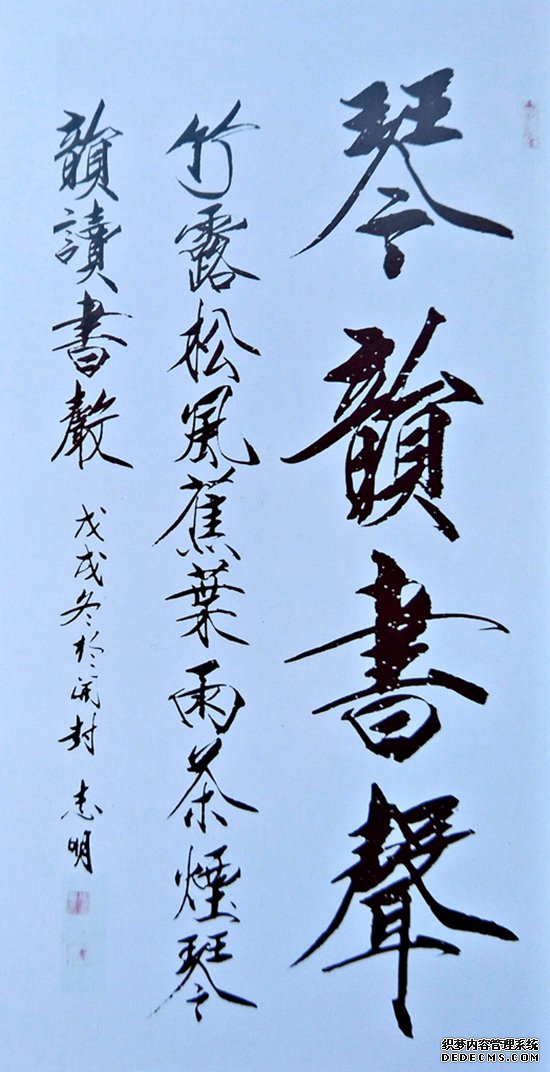 琴韻書聲
竹露松風蕉葉雨茶煙琴
韻讀書聲
戊戌冬於開封 志明
织梦内容管理系统
DEDECMS.COM